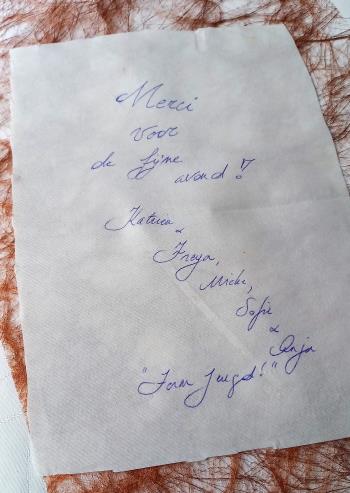 Merci
voor
de fijne
avond!
Katrien
&
Freya,
Micke,
Sofie
&
Anja
Jeugd!"